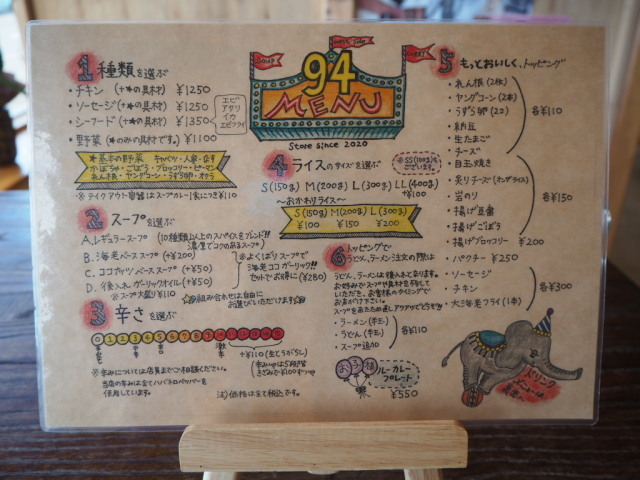 SOUP
CURRY
94
MENU
Store since 2020
1 種類を選ぶ
・チキン (+★の具材) ¥1250
・ソーセージ (+★の具材) ¥1250
・シーフード (+★の具材) ¥1350
エビ
アサリ
イカ
エビフライ
・野菜 (★のみの具材です。) ¥1100
★基本の野菜 キャベツ・人参・なす
かぼちゃ・ごぼう・ブロッコリー・ピーマン
れんこん・ヤングコーン・うずら卵・オクラ
※テイクアウト容器はスープカレー1名につき¥
2 スープを選ぶ
A. レギュラースープ (10種類以上のスパイスをブレンド!! 濃厚でコクのあるスープ)
B. 海老ベーススープ (+¥200)
C. ココナッツベーススープ (+¥50)
D. 後入れガーリックオイル (+¥50)
※スープ大盛り¥110
※よくばりスープで
海老ココガーリック!!
セットでお得に(¥280)
☆組み合わせは自由に
お選びいただけます☆
3 辛さを選ぶ
0 1 2 3 4 5 6 7 8 9 10
+¥110 (生とうがらし)
※辛みについては店員までご相談ください。
当店の辛みは全てハバネロペッパーを
使用しています。
注) 価格は全て税込です。
4 ライスのサイズを選ぶ
※SS(100g)も
ございます。
S(150g) M(200g) L(300g) LL(400g)
+¥100
～おかわりライス～
S(150g) M(200g) L(300g)
¥100 ¥150 ¥200
6 トッピングで
うどん、ラーメン注文の際は
うどん、ラーメンは後入れとなります。
お好みでスープや具材を残して
いただき、お客様のタイミングで
お声がけ下さい。
・ラーメン (半玉)
・うどん (半玉)
・スープ追加
各¥110
お子様
ルーカレー
プレート
¥550
5 もっとおいしく、トッピング
・れん根 (2枚)
・ヤングコーン (2本)
・うずら卵 (2コ)
・納豆
・生たまご
・チーズ
各¥110
・目玉焼き
・炙りチーズ (オンザライス)
・岩のり
・揚げ豆腐
・揚げごぼう
各¥150
・揚げブロッコリー ¥200
・パクチー ¥250
・ソーセージ
・チキン
・大海老フライ (1本)
各¥300
ドリンク